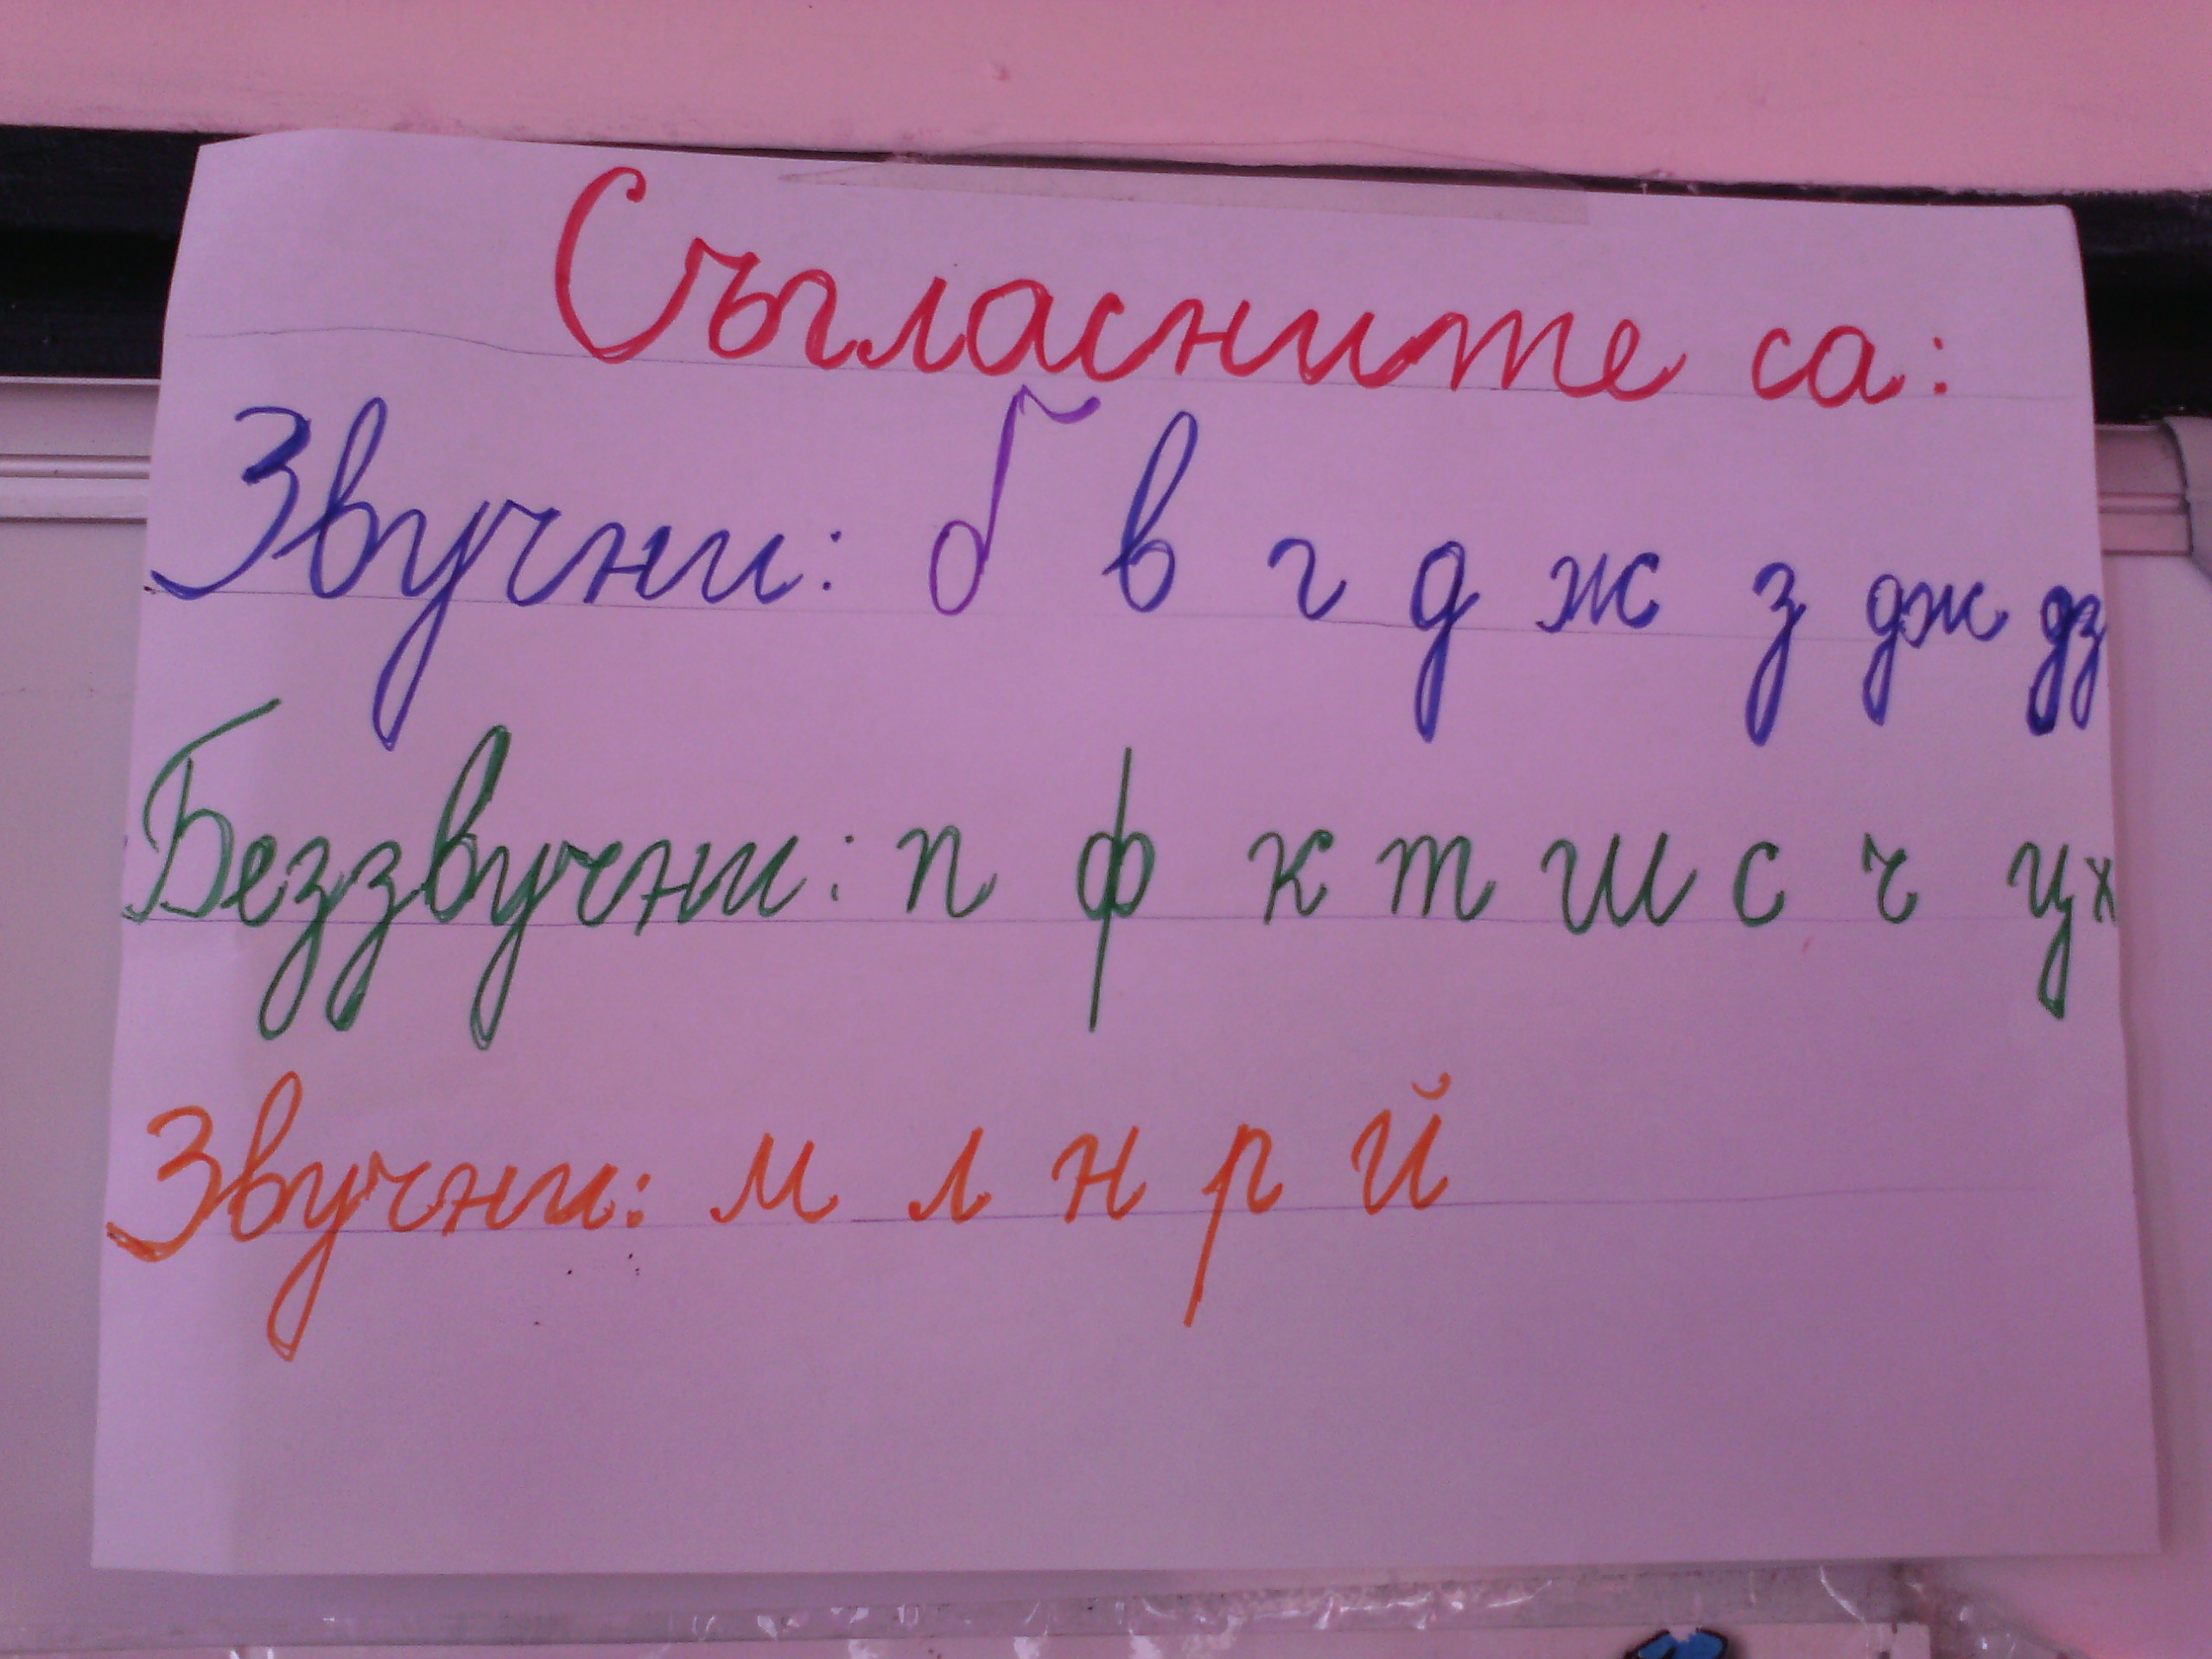 Съгласните са:
Звучни: б в г д ж з дж дз
Беззвучни: п ф к т ш с ч ц х
Звучни: м л н р й